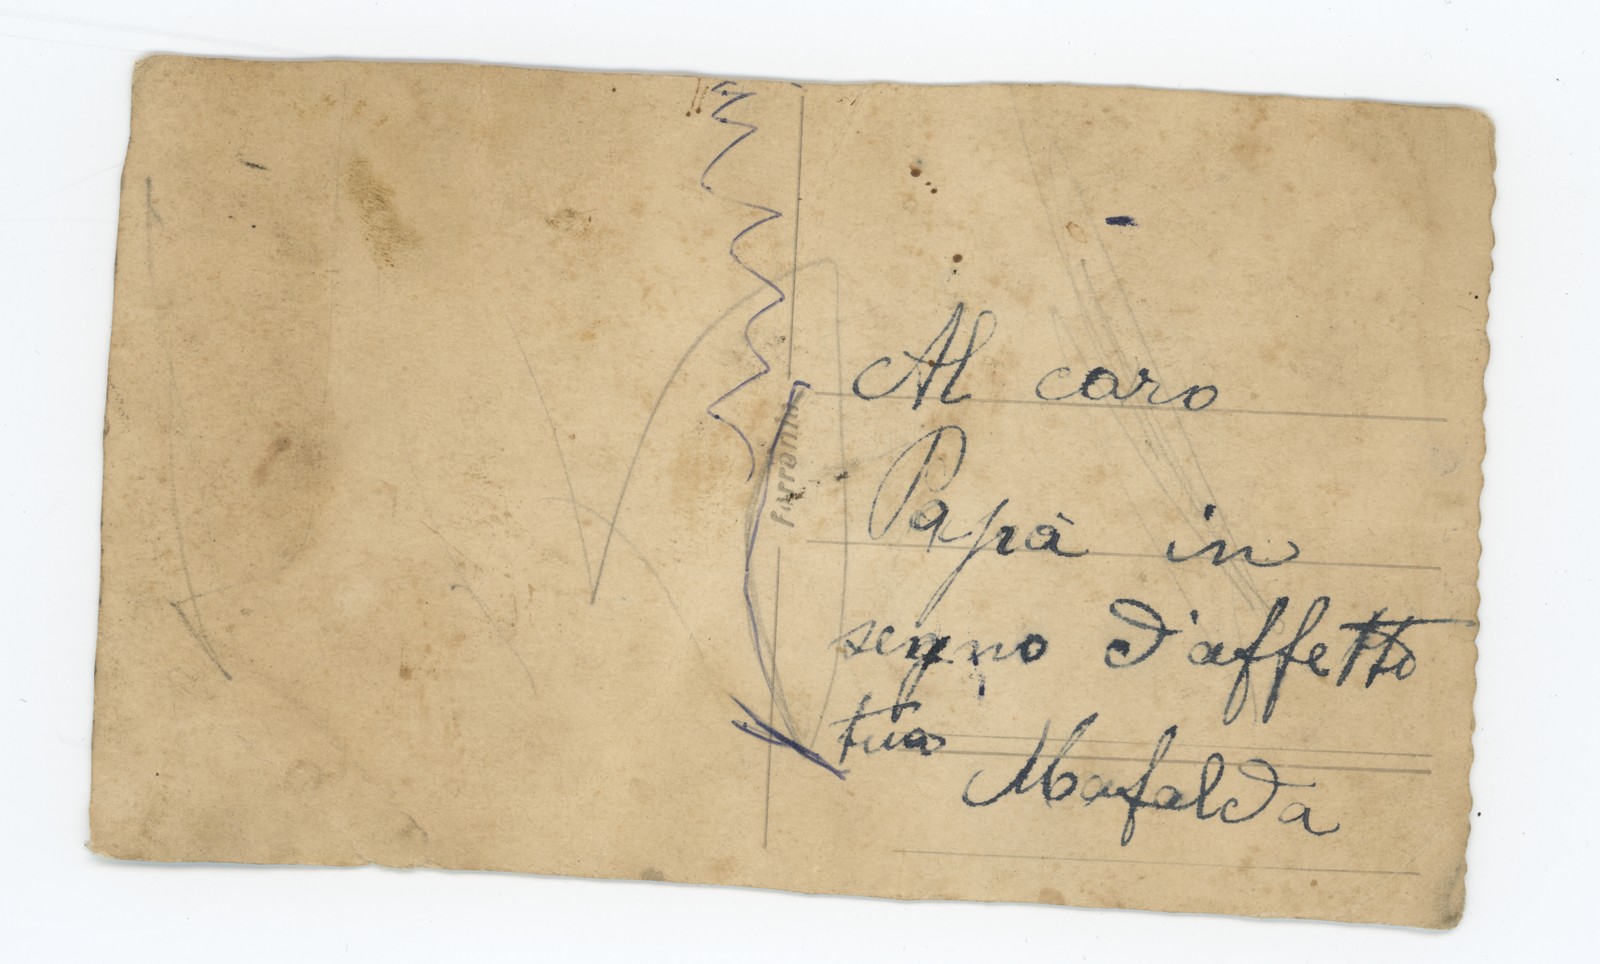 Al caro
Papà in
segno d'affetto
tua
Mafalda
Ferrania